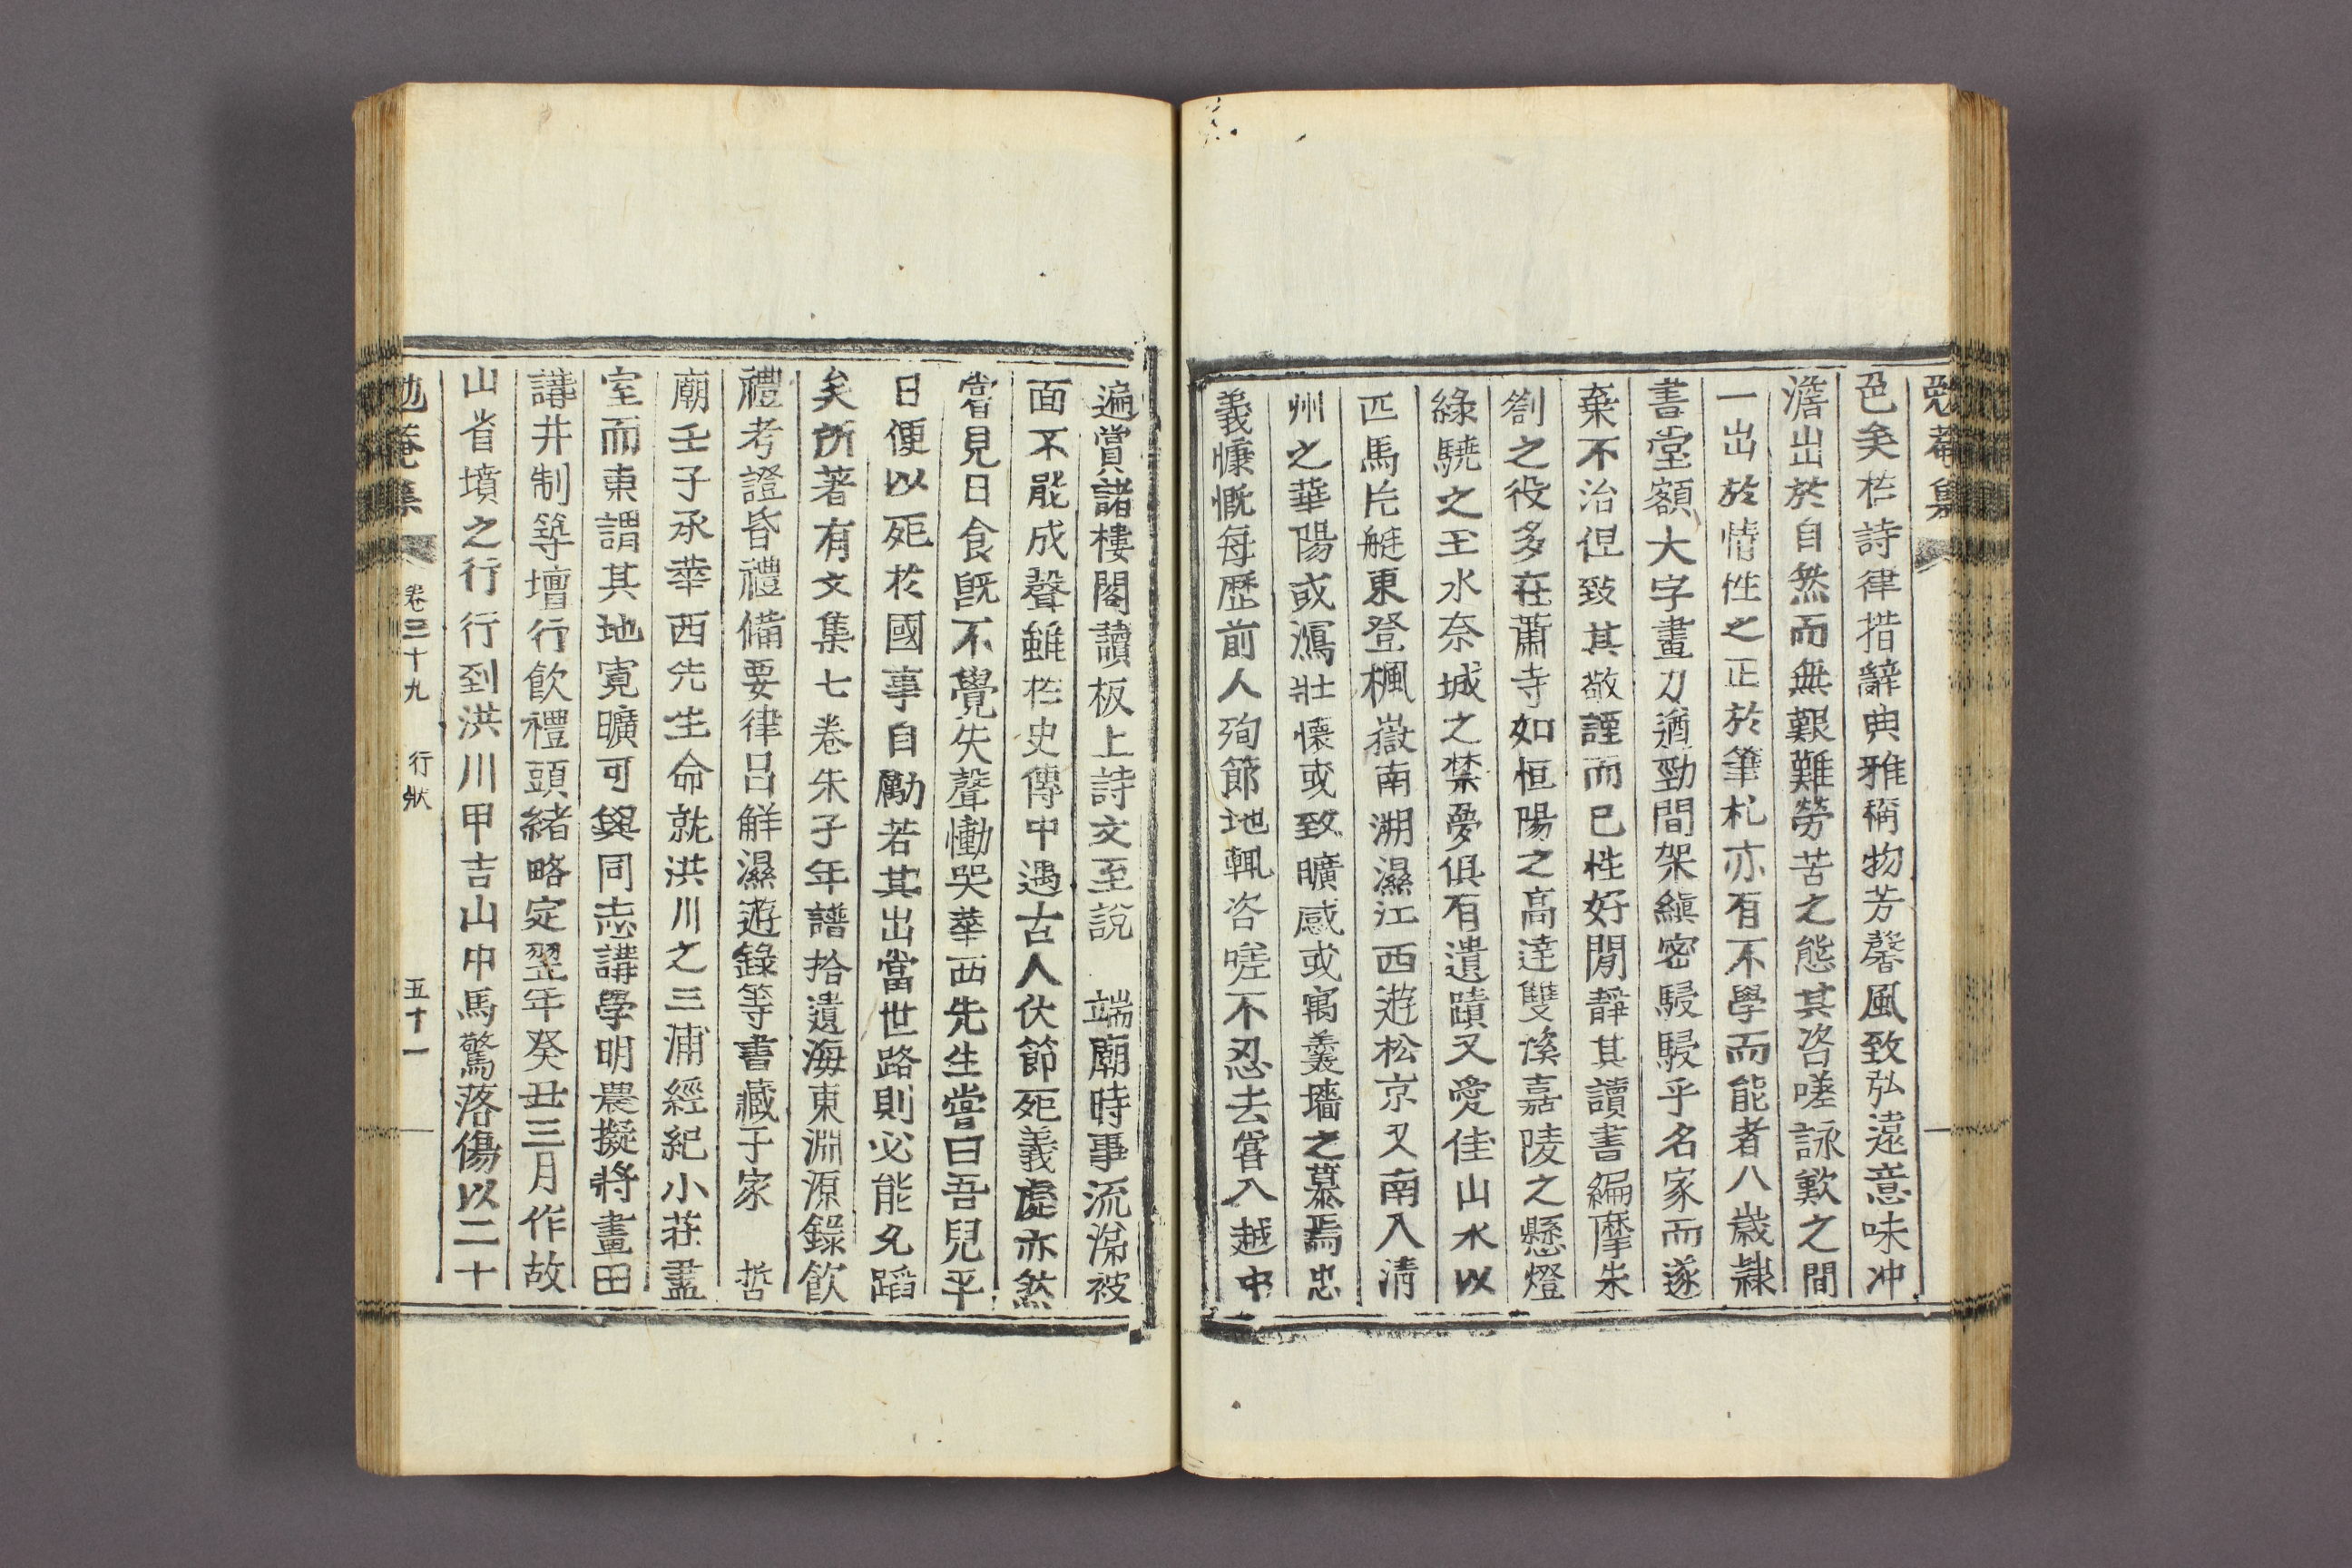 勉菴集
色矣於詩律措辭典雅稱物芳馨風致弘遠意味冲
澹出於自然而無艱難勞苦之態其咨嗟詠歎之間
一出於情性之正於筆札亦有不學而能者八歲隷
書堂額大字畫刀遒勁間架縝密駸駸乎名家而遂
棄不治但致其敬謹而已性好閒靜其讀書編摩朱
劄之役多在蕭寺如恒陽之高達雙溪嘉陵之懸燈
綠驍之王水奈城之禁夢俱有遺蹟又愛佳山水以
匹馬片艇東登楓嶽南溯濕江西遊松京又南入淸
州之華陽或瀉壯懷或致曠感或寓羹墻之慕焉忠
義慷慨每歷前人殉節地輒咨嗟不忍去嘗入越中
遍賞諸樓閣讀板上詩文至說　端廟時事流涕被
面不能成聲雖於史傳中遇古人伏節死義處亦然
嘗見日食旣不覺失聲慟哭華西先生嘗曰吾兒平
日便以死於國事自勵若其出當世路則必能允蹈
矣所著有文集七卷朱子年譜拾遺海東淵源錄飮
禮考證昏禮備要律呂解濕遊錄等書藏于家　哲
廟壬子承華西先生命就洪川之三浦經紀小莊盖
室而東謂其地寬曠可與同志講學明農擬將畫田
講井制築壇行飮禮頭緖略定翌年癸丑三月作故
山省墳之行行到洪川甲吉山中馬驚落傷以二十
勉菴集　卷三十九　行狀　五十一